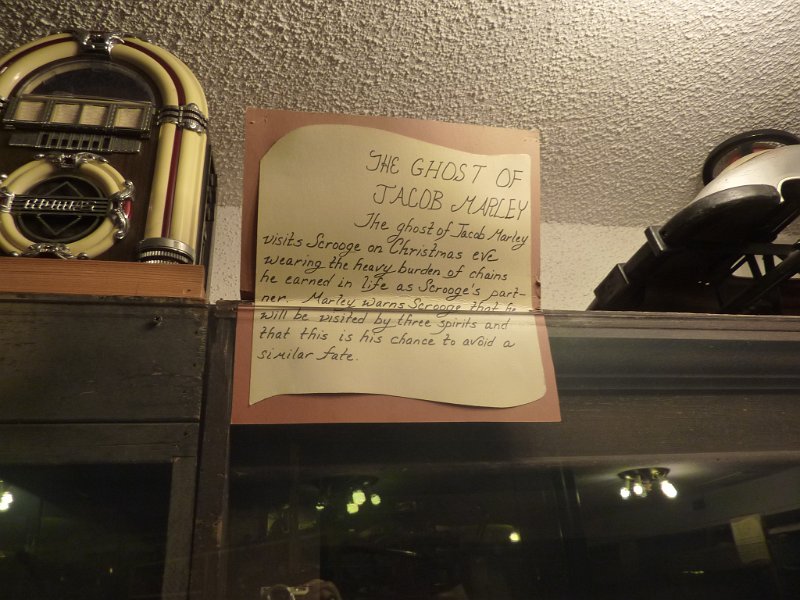 THE GHOST OF
JACOB MARLEY
The ghost of Jacob Marley
visits Scrooge on Christmas eve
wearing the heavy burden of chains
he earned in life as Scrooge's part-
ner. Marley warns Scrooge that he
will be visited by three spirits and
that this is his chance to avoid a
similar fate.